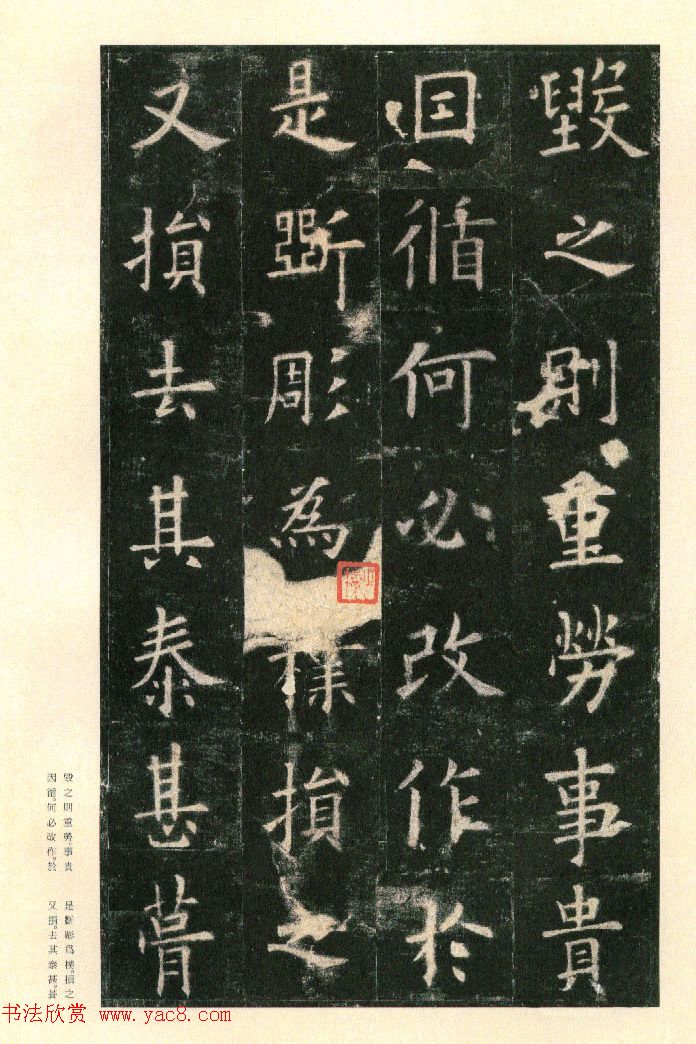 毀之則重勞事貴
因循何必改作於
是斲彫為樸損之
又損去其泰甚葺
毀之則重勞。事貴
因循。何必改作。於
是斲彫爲樸。損之
又損。去其泰甚。葺
书法欣赏 www.yac8.com